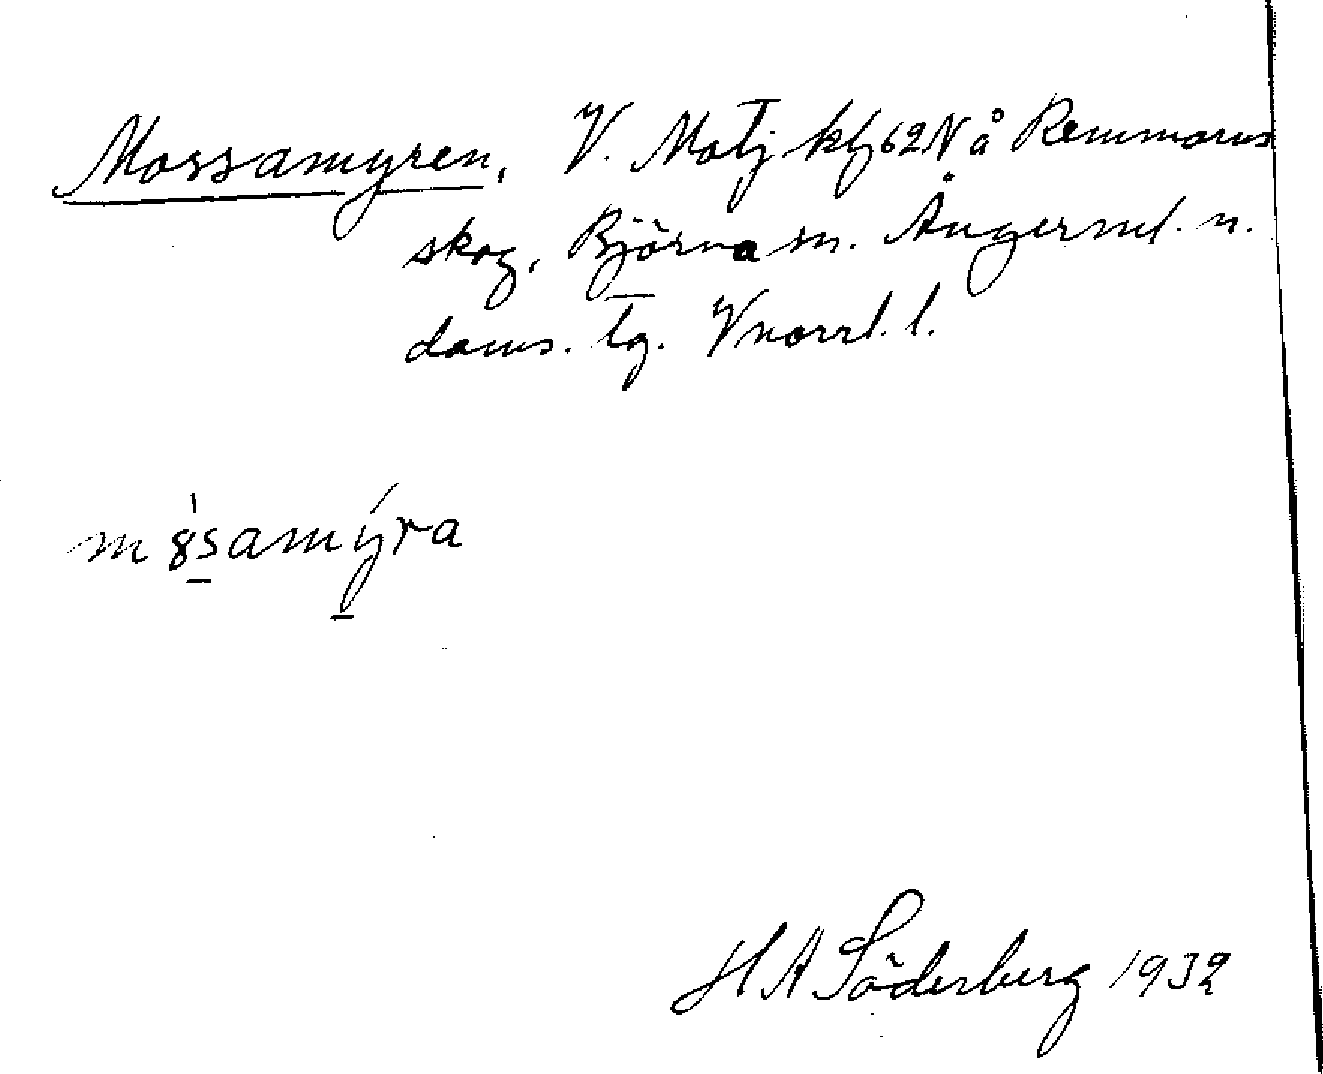 Mossamyren, V. Motj kbl 62 N å Remmarns
skog, Björna sn. Ångerml. n.
doms. tg. Vnorrl. l.
m8samýra
H A Söderberg 1932